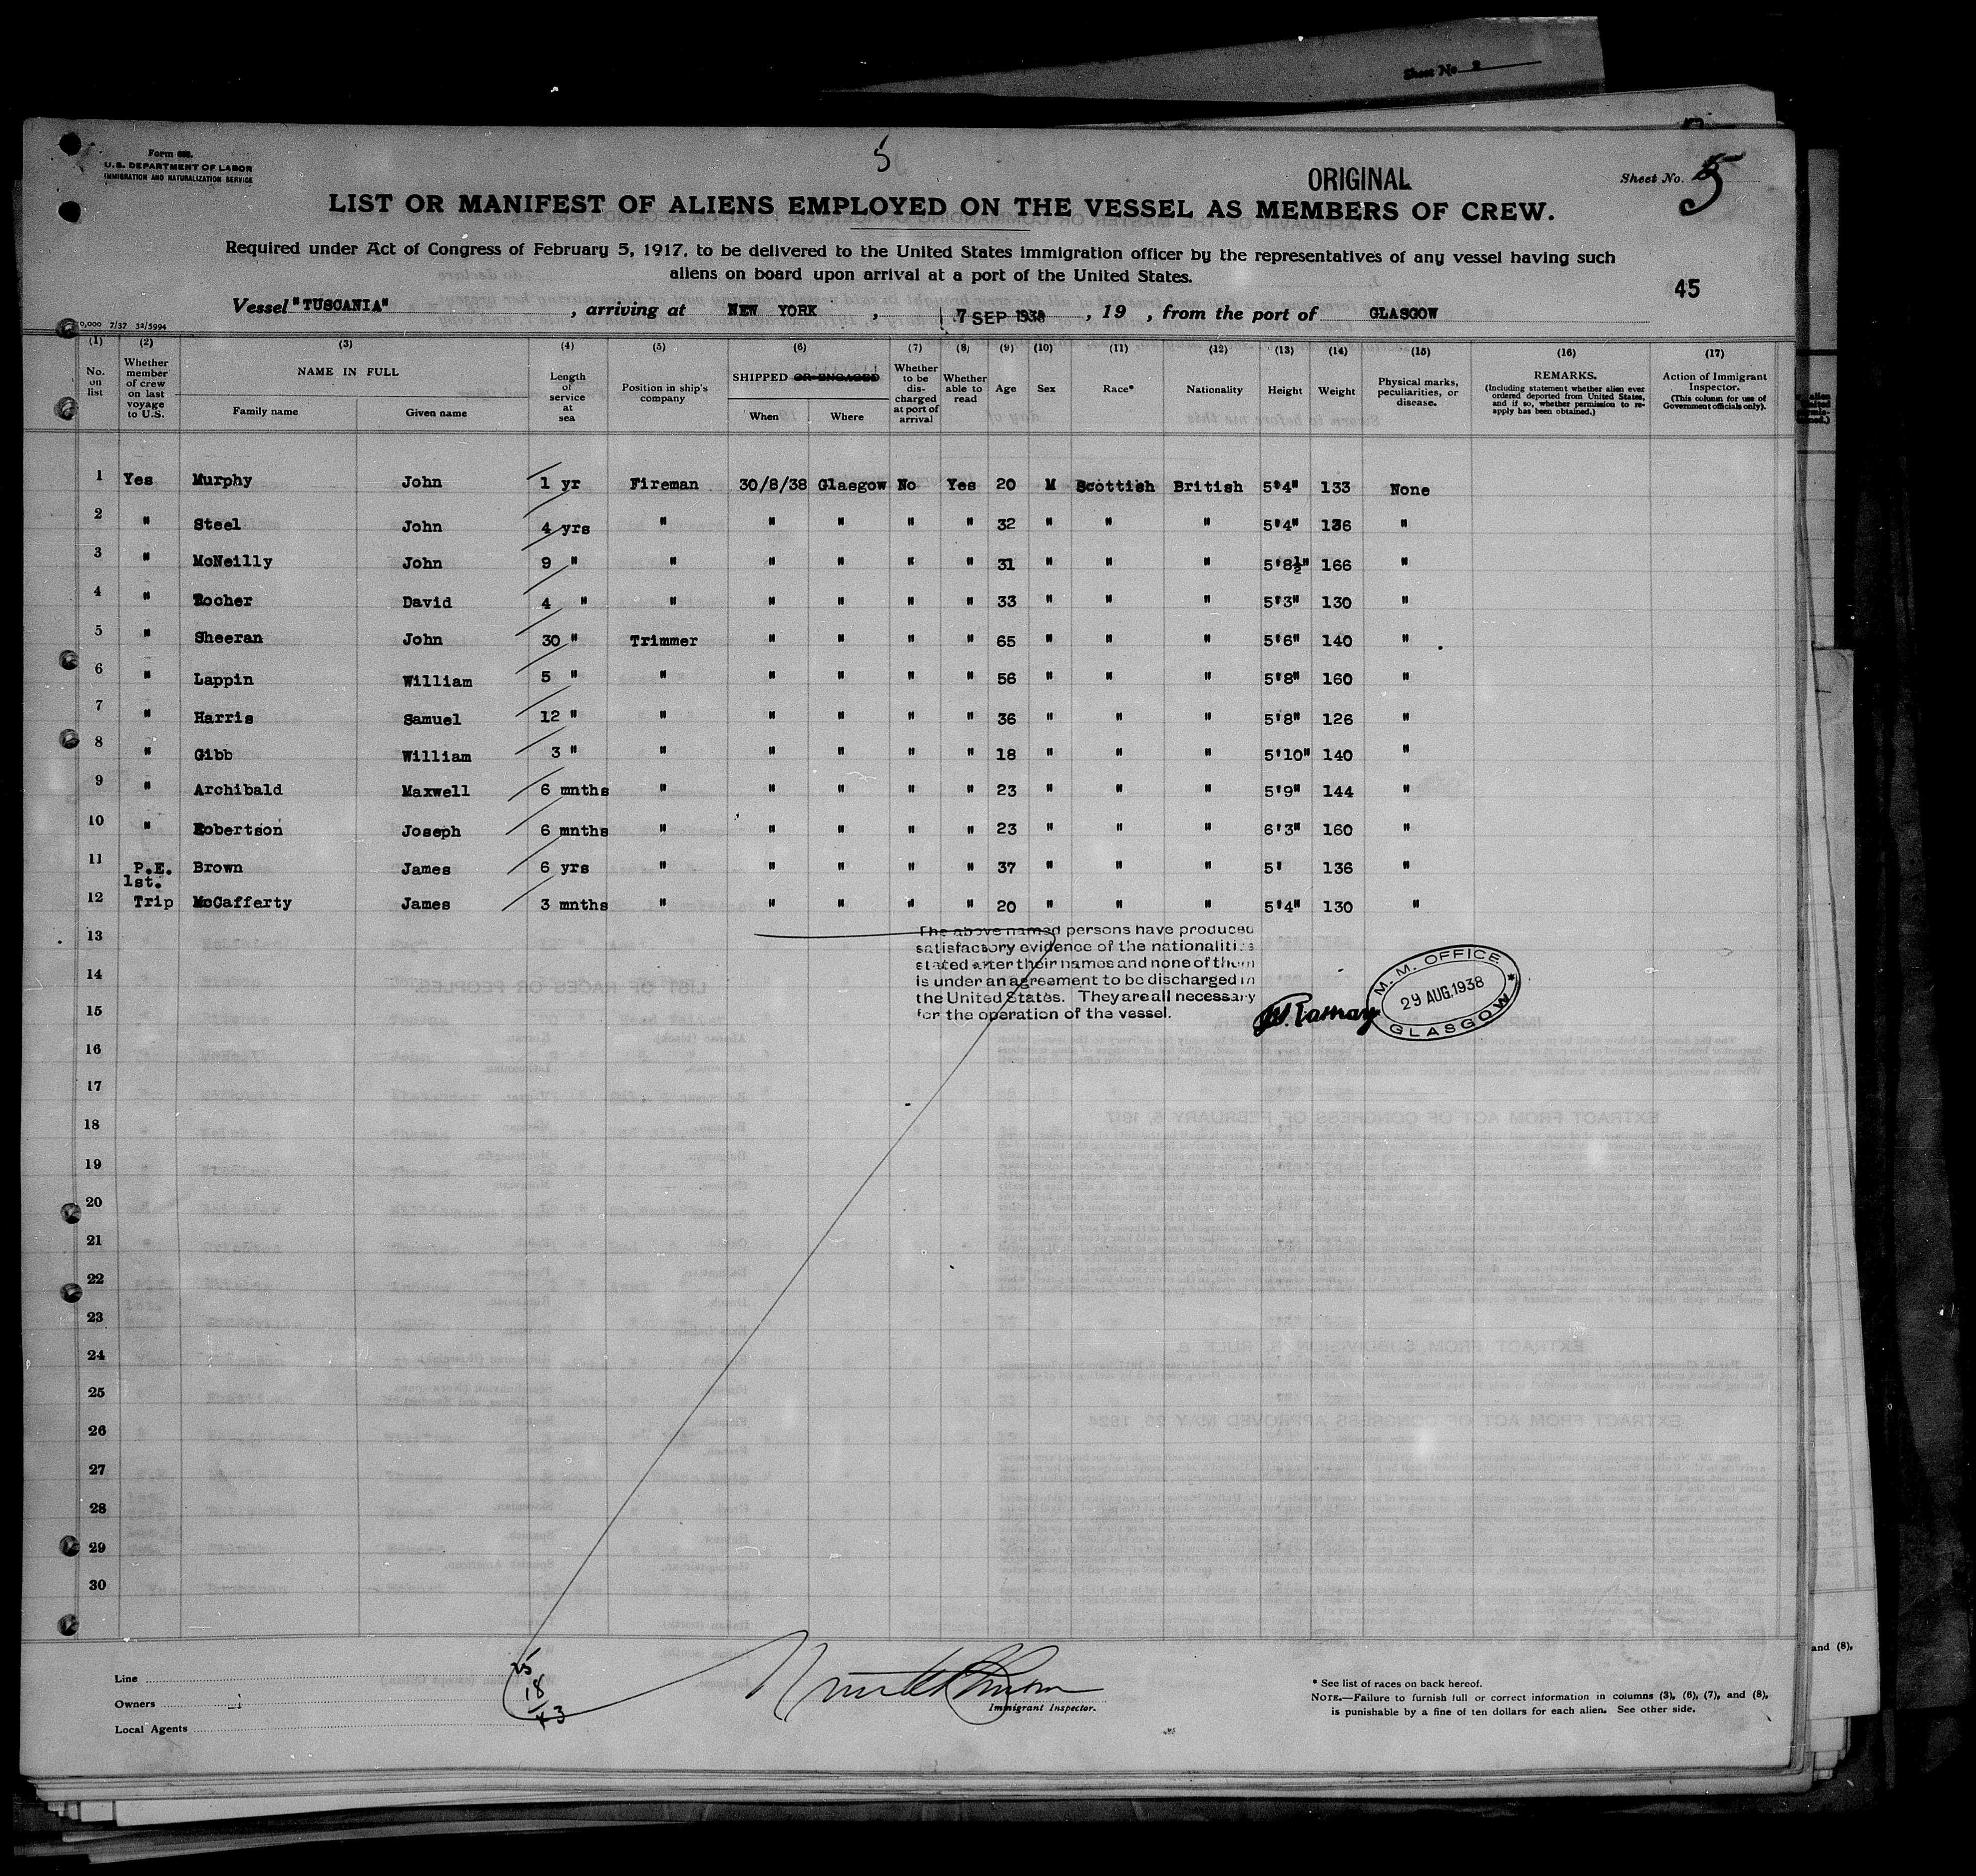 Sheet No. 2
5
Form 688.
U.S. DEPARTMENT OF LABOR
IMMIGRATION AND NATURALIZATION SERVICE
ORIGINAL
Sheet No. 5
LIST OR MANIFEST OF ALIENS EMPLOYED ON THE VESSEL AS MEMBERS OF CREW.
Required under Act of Congress of February 5, 1917, to be delivered to the United States immigration officer by the representatives of any vessel having such
aliens on board upon arrival at a port of the United States.
45
Vessel "TUSCANIA", arriving at NEW YORK, 7 SEP 1938, 19 , from the port of GLASGOW
0,000 7/37 32/5994
(1) (2) (3) (4) (5) (6) (7) (8) (9) (10) (11) (12) (13) (14) (15) (16) (17)
No. on list
Whether member of crew on last voyage to U.S.
NAME IN FULL
Family name
Given name
Length of service at sea
Position in ship's company
SHIPPED OR ENGAGED
When
Where
Whether to be discharged at port of arrival
Whether able to read
Age
Sex
Race*
Nationality
Height
Weight
Physical marks, peculiarities, or disease.
REMARKS.
(Including statement whether alien ever ordered deported from United States, and if so, whether permission to reapply has been obtained.)
Action of Immigrant Inspector.
(This column for use of Government officials only).
1 Yes Murphy John 1 yr Fireman 30/8/38 Glasgow No Yes 20 M Scottish British 5'4" 133 None
2 " Steel John 4 yrs " " " " " 32 " " " 5'4" 136 "
3 " McNeilly John 9 " " " " " " 31 " " " 5'8½" 166 "
4 " Rocher David 4 " " " " " " 33 " " " 5'3" 130 "
5 " Sheeran John 30 " Trimmer " " " " 65 " " " 5'6" 140 "
6 " Lappin William 5 " " " " " " 56 " " " 5'8" 160 "
7 " Harris Samuel 12 " " " " " " 36 " " " 5'8" 126 "
8 " Gibb William 3 " " " " " " 18 " " " 5'10" 140 "
9 " Archibald Maxwell 6 mnths " " " " " 23 " " " 5'9" 144 "
10 " Robertson Joseph 6 mnths " " " " " 23 " " " 6'3" 160 "
11 P.E. Brown James 6 yrs " " " " " 37 " " " 5' 136 "
1st.
12 Trip McCafferty James 3 mnths " " " " " 20 " " " 5'4" 130 "
13
The above named persons have produced
satisfactory evidence of the nationalities
stated after their names and none of them
is under an agreement to be discharged in
the United States. They are all necessary
for the operation of the vessel.
M.M. OFFICE
29 AUG.1938
GLASGOW
14
15
16
17
18
19
20
21
22
23
24
25
26
27
28
29
30
Line
Owners
Local Agents
25
18
43
Immigrant Inspector.
* See list of races on back hereof.
NOTE.—Failure to furnish full or correct information in columns (3), (6), (7), and (8),
is punishable by a fine of ten dollars for each alien. See other side.
and (8),